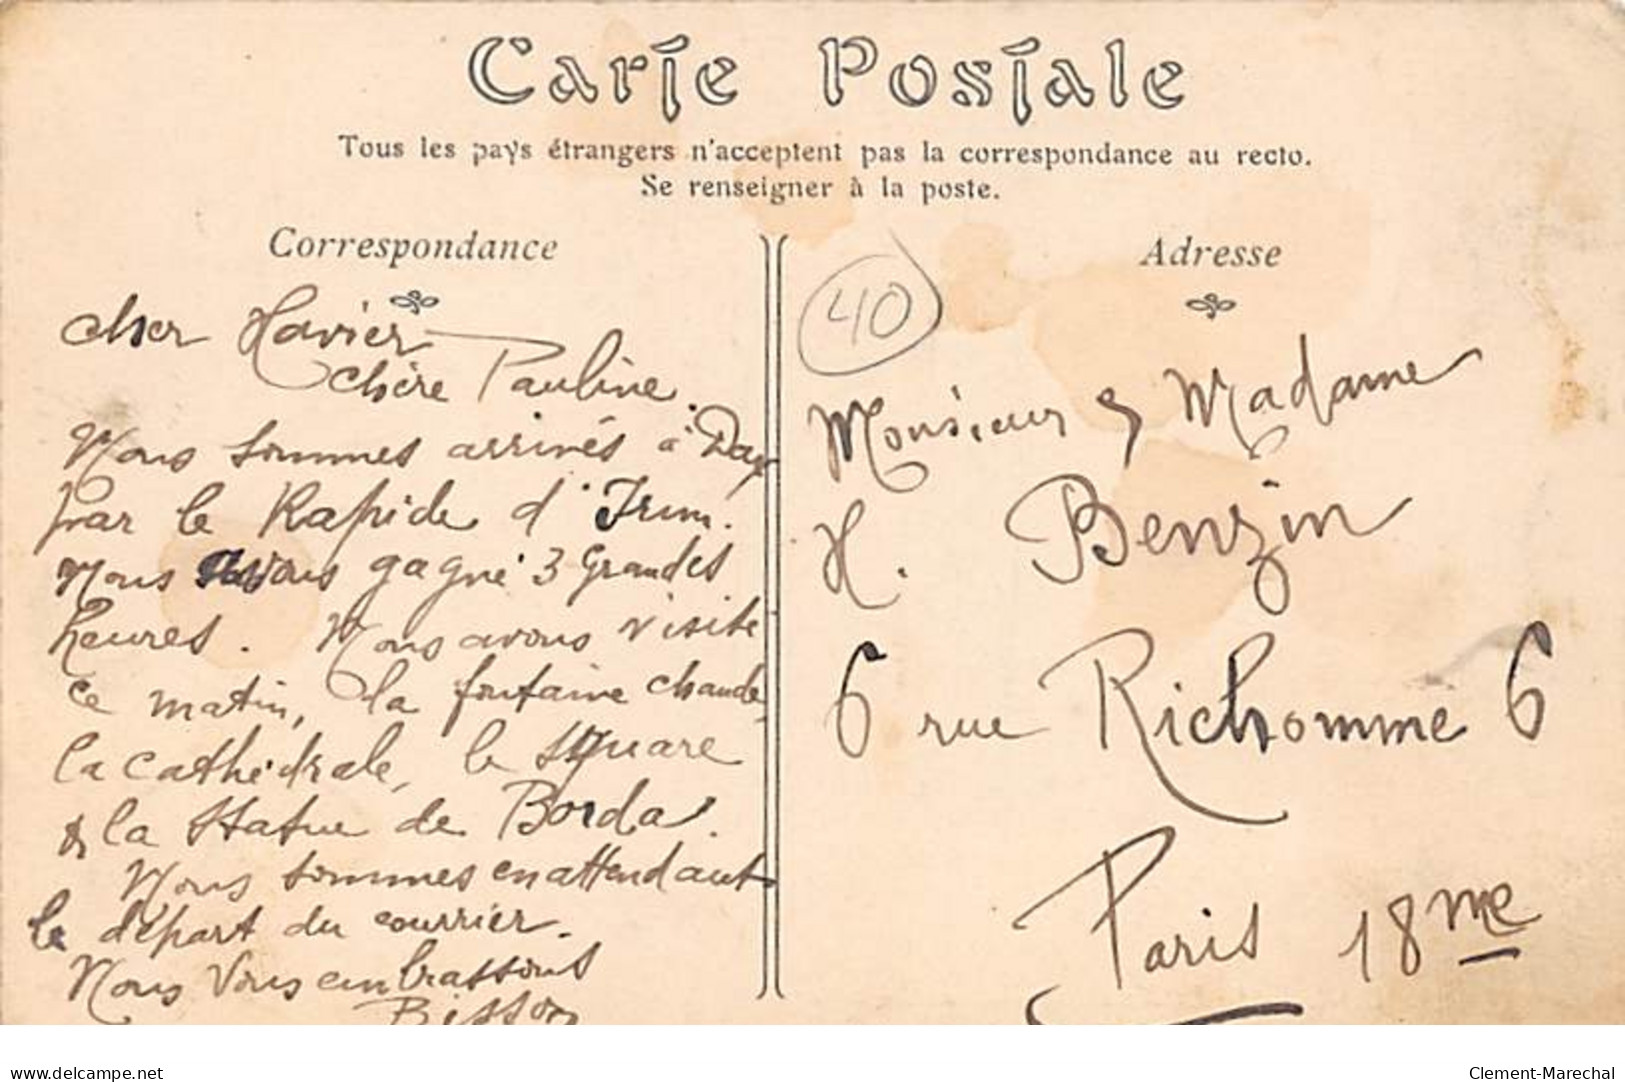 Carte Postale
Tous les pays étrangers n'acceptent pas la correspondance au recto.
Se renseigner à la poste.
Correspondance
cher Xavier
chère Pauline.
Nous sommes arrivés à Dax
par le Rapide d'Irun.
Nous avons gagné 3 grandes
heures. Nous avons visité
ce matin, la fontaine chaude,
la cathédrale, le square
& la statue de Borda.
Nous sommes en attendant
le départ du courrier.
Nous vous embrassons
Bisson
Adresse
40
Monsieur & Madame
H. Benzin
6 rue Richomme 6
Paris 18me
www.delcampe.net
Clement-Marechal